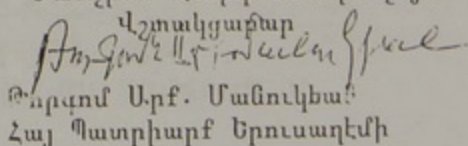 Վշտակցաբար
Թորգոմ Արք. Մանուկեան
Հայ Պատրիարք Երուսաղէմի